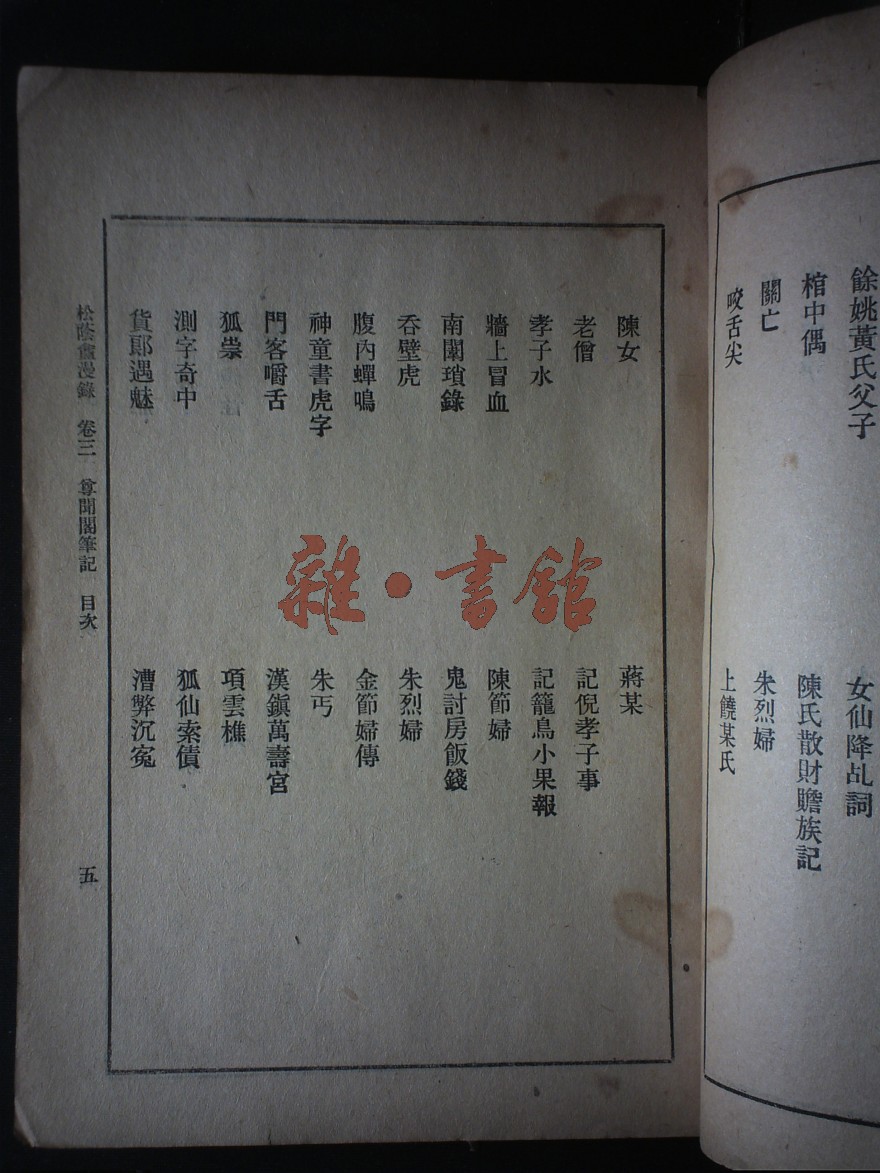 餘姚黃氏父子
女仙降乩詞
棺中偶
陳氏散財贍族記
關亡
朱烈婦
咬舌尖
上饒某氏
陳女
蔣某
老僧
記倪孝子事
孝子水
記籠鳥小果報
牆上冒血
陳節婦
南闈瑣錄
鬼討房飯錢
吞壁虎
朱烈婦
腹內蟬鳴
金節婦傳
神童書虎字
朱丐
門客嚼舌
漢鎮萬壽宮
狐祟
項雲樵
測字奇中
狐仙索債
貨郎遇魅
漕弊沉冤
松蔭盦漫錄 卷三 尊聞閣筆記 目次
五
雜·書館